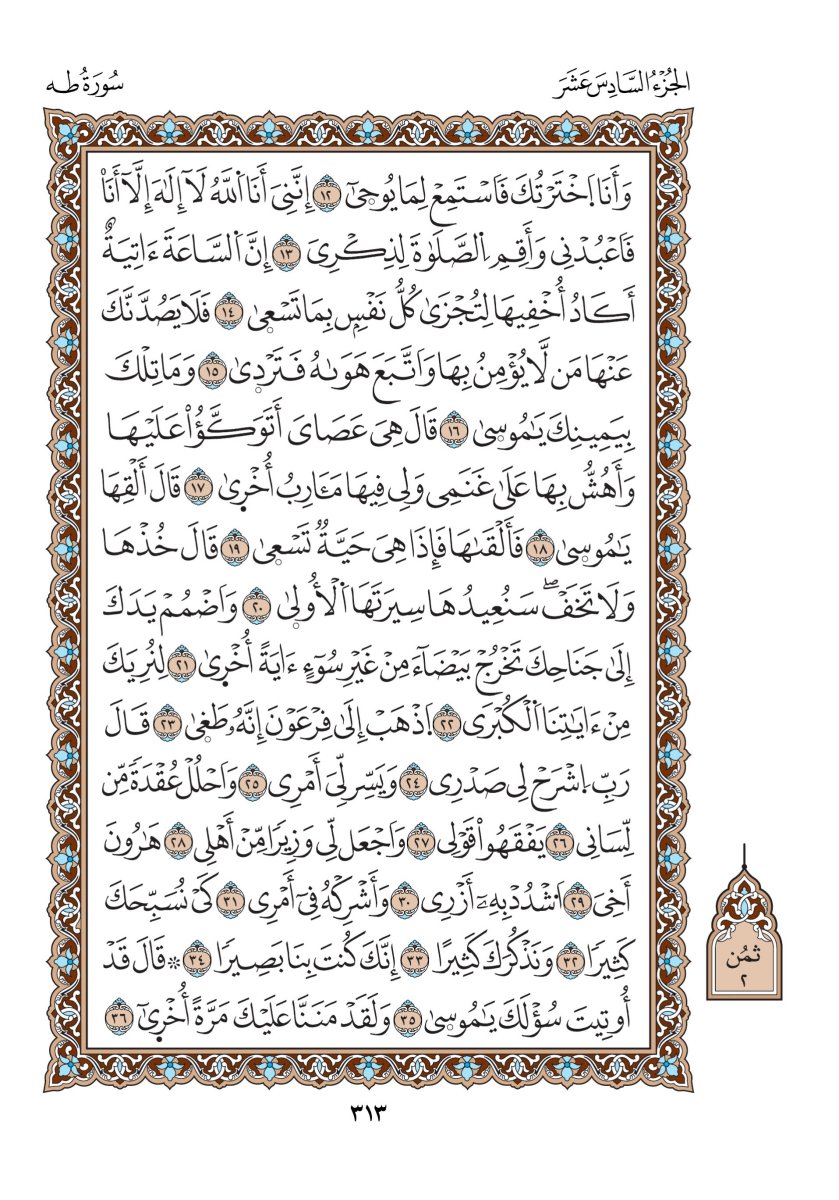 الجُزْءُ السَّادِسَ عَشَرَ
سُورَةُ طه
وَأَنَا اَ۪خْتَرْتُكَ فَاسْتَمِعْ لِمَا يُوحَىٰٓ ١٢ إِنَّنِىٓ أَنَا اَ۬للَّهُ لَآ إِلَٰهَ إِلَّآ أَنَا
فَاعْبُدْنِى وَأَقِمِ اِ۬لصَّلَوٰةَ لِذِكْرِىَ ١٣ إِنَّ اَ۬لسَّاعَةَ ءَاتِيَةٌ
أَكَادُ أُخْفِيهَا لِتُجْزَىٰ كُلُّ نَفْسِۭ بِمَا تَسْعَىٰ ١٤ فَلَا يَصُدَّنَّكَ
عَنْهَا مَن لَّا يُؤْمِنُ بِهَا وَاتَّبَعَ هَوَىٰهُ فَتَرْدَىٰ ١٥ وَمَا تِلْكَ
بِيَمِينِكَ يَٰمُوسَىٰ ١٦ قَالَ هِىَ عَصَاىَ أَتَوَكَّؤُاْ عَلَيْهَا
وَأَهُشُّ بِهَا عَلَىٰ غَنَمِى وَلِى فِيهَا مَـَٔارِبُ أُخْرَىٰ ١٧ قَالَ أَلْقِهَا
يَٰمُوسَىٰ ١٨ فَأَلْقَىٰهَا فَإِذَا هِىَ حَيَّةٌ تَسْعَىٰ ١٩ قَالَ خُذْهَا
وَلَا تَخَفْۖ سَنُعِيدُهَا سِيرَتَهَا اَ۬لْأُولَىٰ ٢٠ وَاضْمُمْ يَدَكَ
إِلَىٰ جَنَاحِكَ تَخْرُجْ بَيْضَآءَ مِنْ غَيْرِ سُوٓءٍ ءَايَةً أُخْرَىٰ ٢١ لِنُرِيَكَ
مِنْ ءَايَٰتِنَا اَ۬لْكُبْرَى ٢٢ اَ۪ذْهَبْ إِلَىٰ فِرْعَوْنَ إِنَّهُۥ طَغَىٰ ٢٣ قَالَ
رَبِّ اِ۪شْرَحْ لِى صَدْرِى ٢٤ وَيَسِّر لِّىَ أَمْرِى ٢٥ وَاحْلُلْ عُقْدَةً مِّن
لِّسَانِى ٢٦ يَفْقَهُواْ قَوْلِى ٢٧ وَاجْعَل لِّى وَزِيرًا مِّنْ أَهْلِى ٢٨ هَٰرُونَ
أَخِىَ ٢٩ اَ۟شْدُدْ بِهِۦٓ أَزْرِى ٣٠ وَأَشْرِكْهُ فِىٓ أَمْرِى ٣١ كَىْ نُسَبِّحَكَ
كَثِيرًا ٣٢ وَنَذْكُرَكَ كَثِيرًا ٣٣ إِنَّكَ كُنتَ بِنَا بَصِيرًا ٣٤ ۞ قَالَ قَدْ
أُوتِيتَ سُؤْلَكَ يَٰمُوسَىٰ ٣٥ وَلَقَدْ مَنَنَّا عَلَيْكَ مَرَّةً أُخْرَىٰٓ ٣٦
ثُمُن
٢
٣١٣